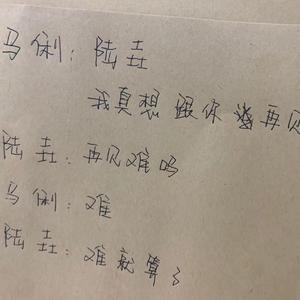 马俐：陆垚
我真想跟你说再见
陆垚：再见难吗
马俐：难
陆垚：难就算了